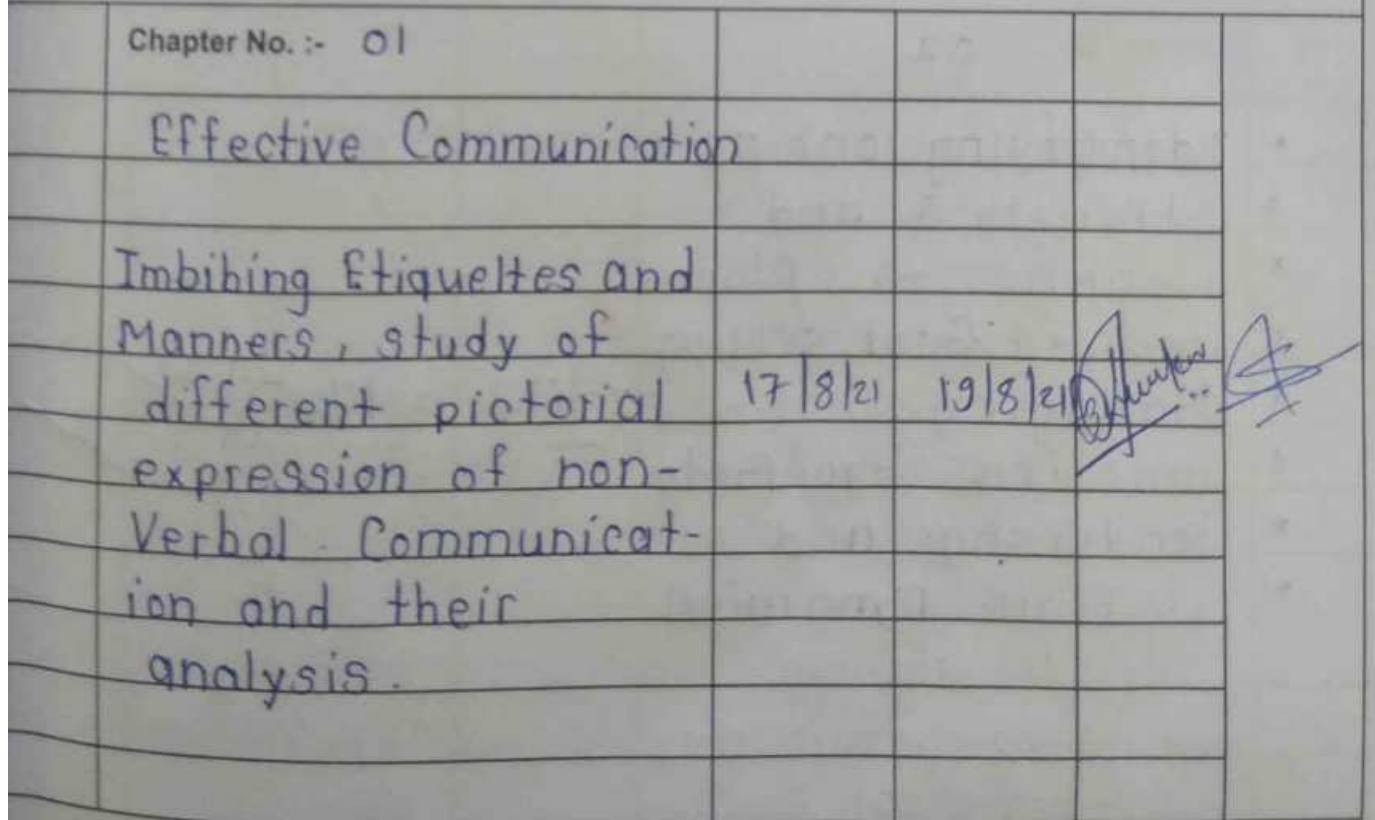 Chapter No. :- 01
Effective Communication
Imbibing Etiquettes and
Manners, study of
different pictorial
17/8/21 19/8/21
expression of non-
Verbal Communicat-
ion and their
analysis.